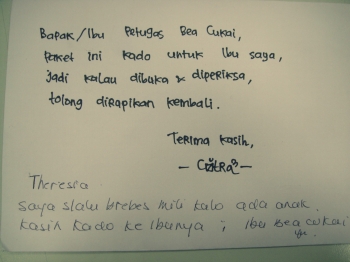 Bapak/Ibu Petugas Bea Cukai,
Paket ini kado untuk Ibu saya,
jadi kalau dibuka & diperiksa,
tolong dirapikan kembali.
Terima kasih,
- Citra -
Theresia
saya slalu brebes mili kalo ada anak
kasih kado ke Ibunya ; Ibu Bea cukai